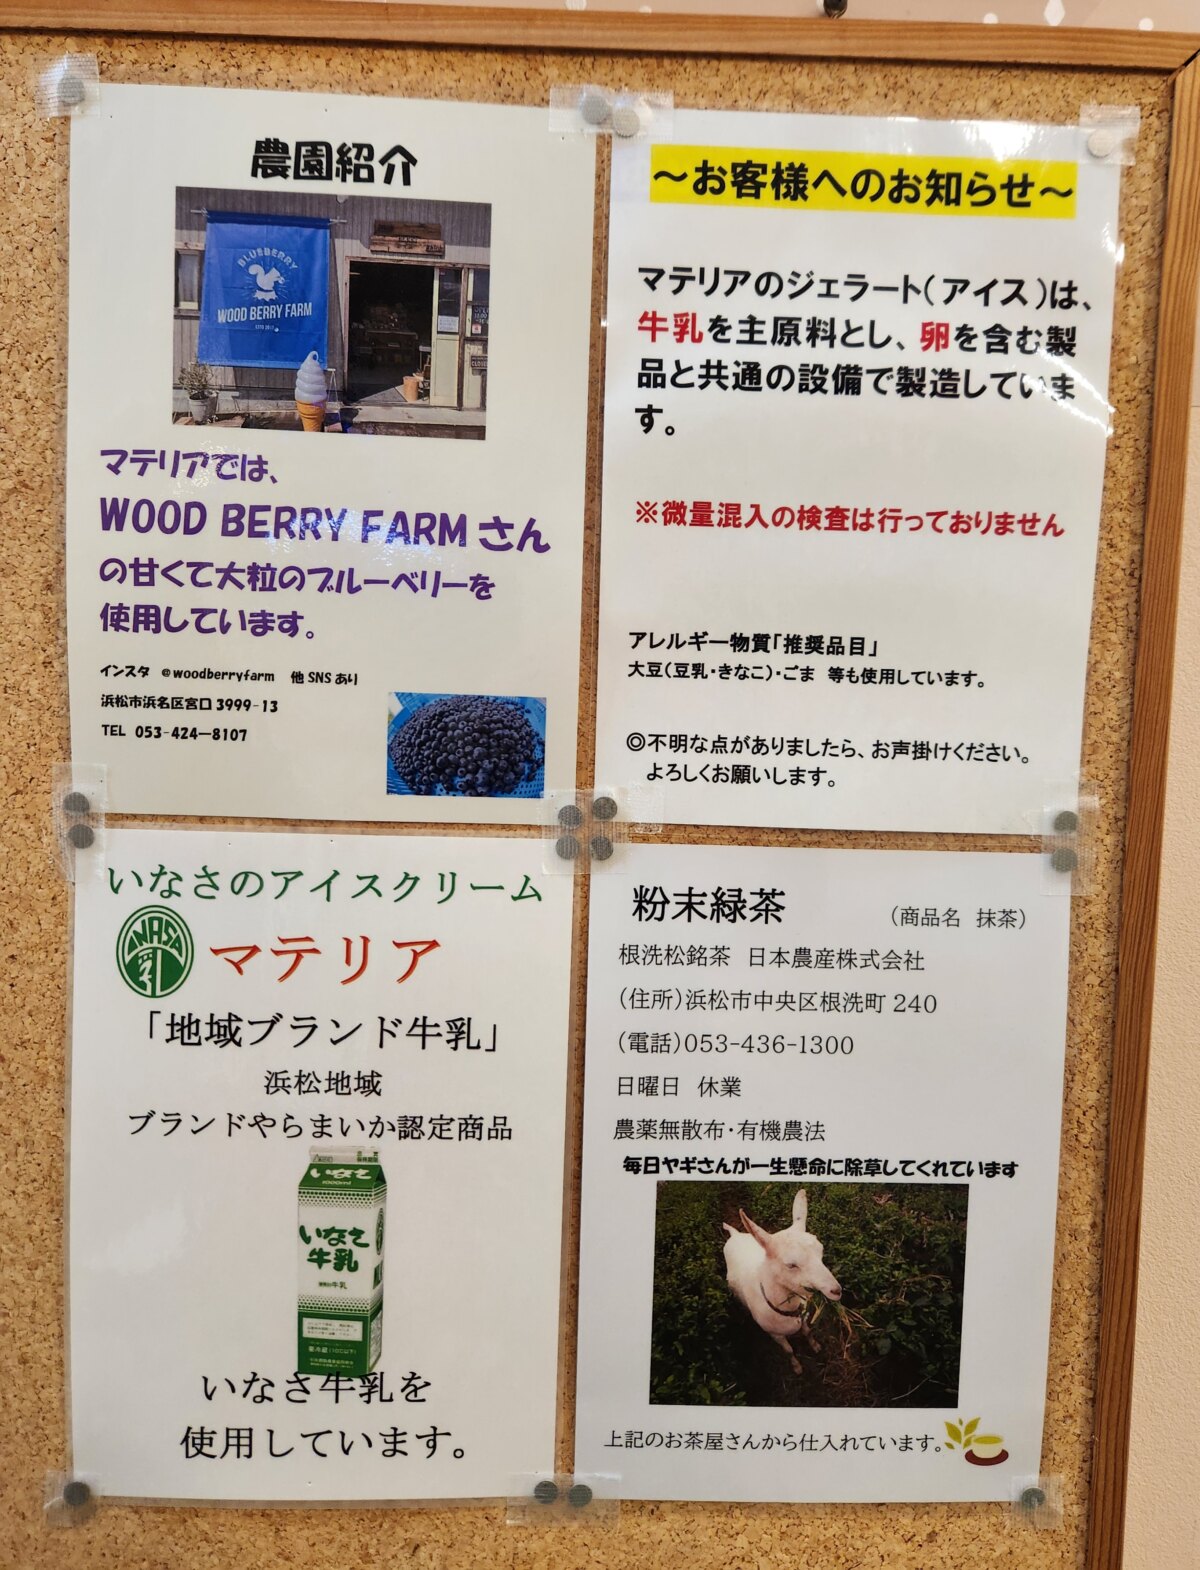 農園紹介
BLUEBERRY
WOOD BERRY FARM
マテリアでは、
WOOD BERRY FARM さん
の甘くて大粒のブルーベリーを
使用しています。
インスタ @woodberryfarm 他 SNS あり
浜松市浜名区宮口 3999-13
TEL 053-424-8107
～お客様へのお知らせ～
マテリアのジェラート(アイス)は、
牛乳を主原料とし、卵を含む製
品と共通の設備で製造していま
す。
※微量混入の検査は行っておりません
アレルギー物質「推奨品目」
大豆(豆乳・きなこ)・ごま 等も使用しています。
◎不明な点がありましたら、お声掛けください。
よろしくお願いします。
いなさのアイスクリーム
INASA
乳
マテリア
「地域ブランド牛乳」
浜松地域
ブランドやらまいか認定商品
いなさ
1000ml
いなさ
牛乳
いなさ牛乳を
使用しています。
粉末緑茶 (商品名 抹茶)
根洗松銘茶 日本農産株式会社
(住所)浜松市中央区根洗町 240
(電話)053-436-1300
日曜日 休業
農薬無散布・有機農法
毎日ヤギさんが一生懸命に除草してくれています
上記のお茶屋さんから仕入れています。